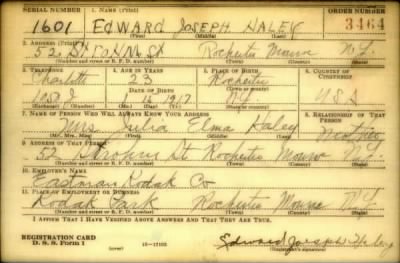 SERIAL NUMBER 1. NAME (Print) ORDER NUMBER
1601 EDWARD JOSEPH HALEY 3464
(First) (Middle) (Last)
2. ADDRESS (Print)
52 St Rochester Monroe N.Y.
(Number and street or R. F. D. number) (Town) (County) (State)
3. TELEPHONE 4. AGE IN YEARS 5. PLACE OF BIRTH 6. COUNTRY OF CITIZENSHIP
Charlotte 23 Rochester
DATE OF BIRTH
15 1917 N.Y. U S A
(Exchange) (Number) (Mo.) (Day) (Yr.) (State or country)
7. NAME OF PERSON WHO WILL ALWAYS KNOW YOUR ADDRESS 8. RELATIONSHIP OF THAT PERSON
Mrs. Julia Elma Haley Mother
(Mr., Mrs., Miss) (First) (Middle) (Last)
9. ADDRESS OF THAT PERSON
52 St Rochester Monroe N.Y.
(Number and street or R. F. D. number) (Town) (County) (State)
10. EMPLOYER'S NAME
Eastman Kodak Co
11. PLACE OF EMPLOYMENT OR BUSINESS
Kodak Park Rochester Monroe N.Y.
(Number and street or R. F. D. number) (Town) (County) (State)
I AFFIRM THAT I HAVE VERIFIED ABOVE ANSWERS AND THAT THEY ARE TRUE.
REGISTRATION CARD
D. S. S. Form 1 (over) Edward Joseph Haley
(Registrant's signature)